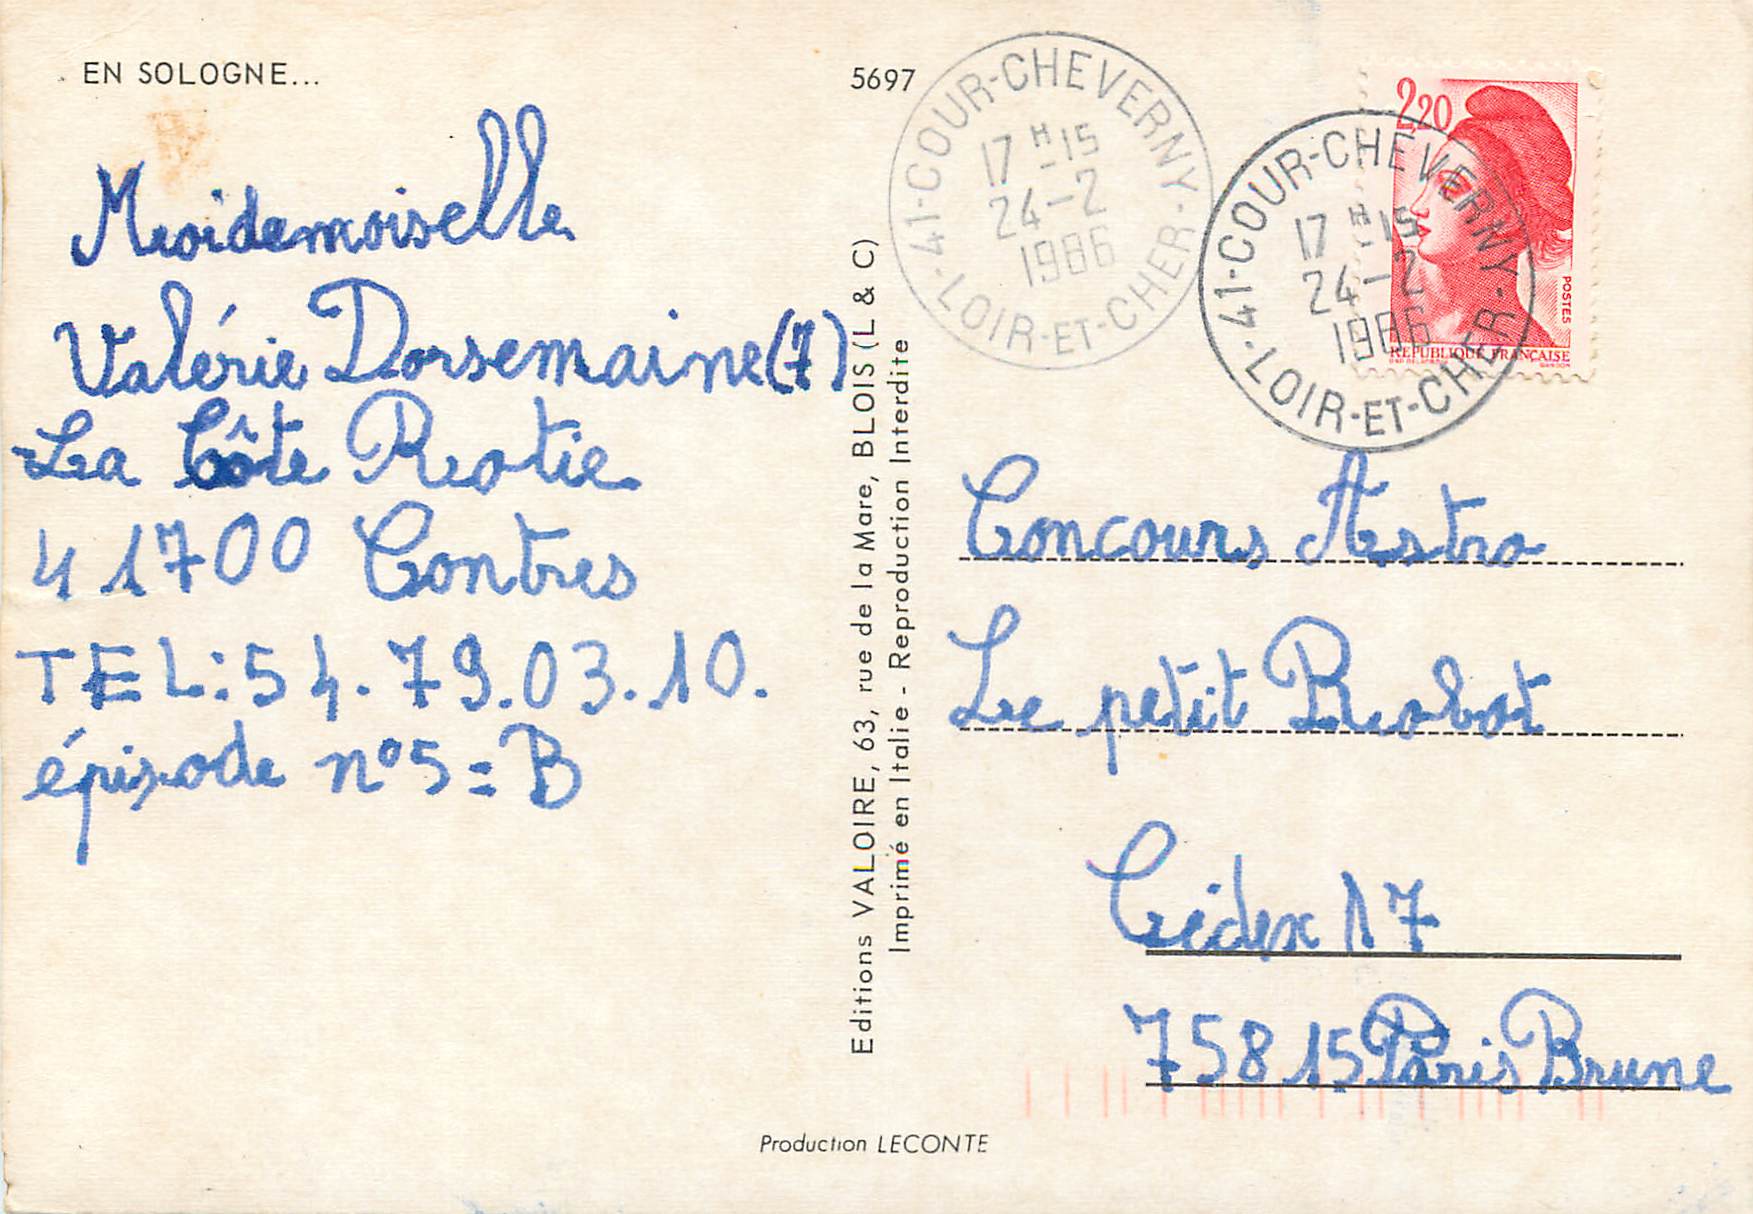 EN SOLOGNE...
Mademoiselle
Valérie Dorsemaine (7)
La Côte Rotie
41700 Contres
TEL: 54.79.03.10.
épisode n°5 = B
5697
Editions VALOIRE, 63, rue de la Mare, BLOIS (L & C)
Imprimé en Italie - Reproduction Interdite
41-COUR-CHEVERNY
17 H 15
24-2
1986
LOIR-ET-CHER
2,20
POSTES
REPUBLIQUE FRANÇAISE
41-COUR-CHEVERNY
17 H 15
24-2
1986
LOIR-ET-CHER
Concours Astro
Le petit Robot
Cédex 17
75815 Paris Brune
Production LECONTE